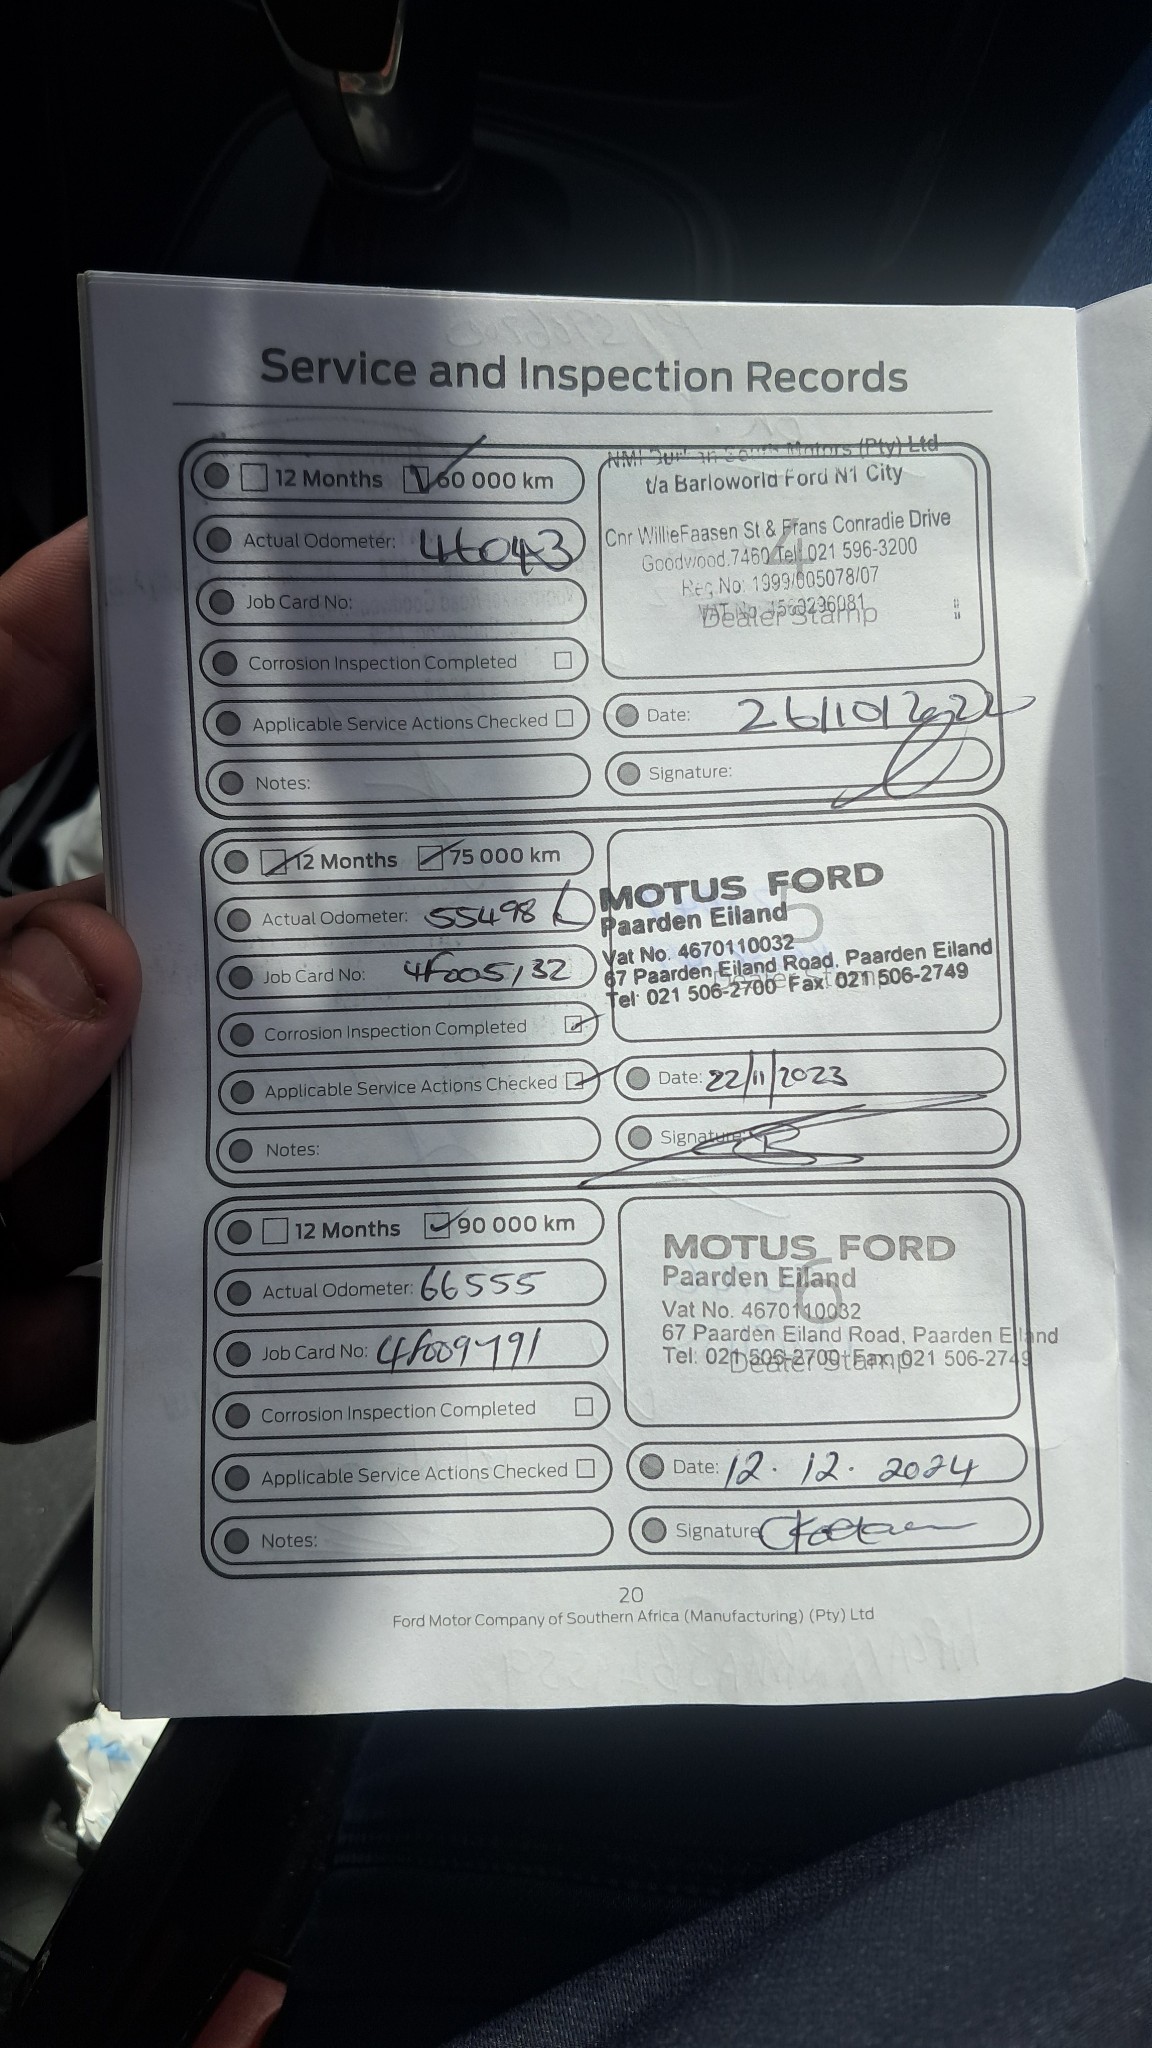 Service and Inspection Records
12 Months 60 000 km
Actual Odometer: 46043
Job Card No:
Corrosion Inspection Completed
Applicable Service Actions Checked
Notes:
Motors (Pty) Ltd
t/a Barloworld Ford N1 City
Cnr WillieFaasen St & Frans Conradie Drive
Goodwood.7460 Tel 021 596-3200
Reg No: 1999/005078/07
VAT No 4560296081
4
Dealer Stamp
Date: 26/10/2022
Signature:
12 Months 75 000 km
Actual Odometer: 55498
Job Card No: 4F005132
Corrosion Inspection Completed
Applicable Service Actions Checked
Notes:
MOTUS FORD
Paarden Eiland
Vat No. 4670110032
67 Paarden Eiland Road, Paarden Eiland
Tel: 021 506-2700 Fax: 021 506-2749
Dealer Stamp
Date: 22/11/2023
Signature:
12 Months 90 000 km
Actual Odometer: 66555
Job Card No:
Corrosion Inspection Completed
Applicable Service Actions Checked
Notes:
MOTUS FORD
Paarden Eiland
6
Vat No. 4670110032
67 Paarden Eiland Road, Paarden Eiland
Tel: 021 506-2700 Fax: 021 506-2749
Dealer Stamp
Date: 12.12.2024
Signature
20
Ford Motor Company of Southern Africa (Manufacturing) (Pty) Ltd